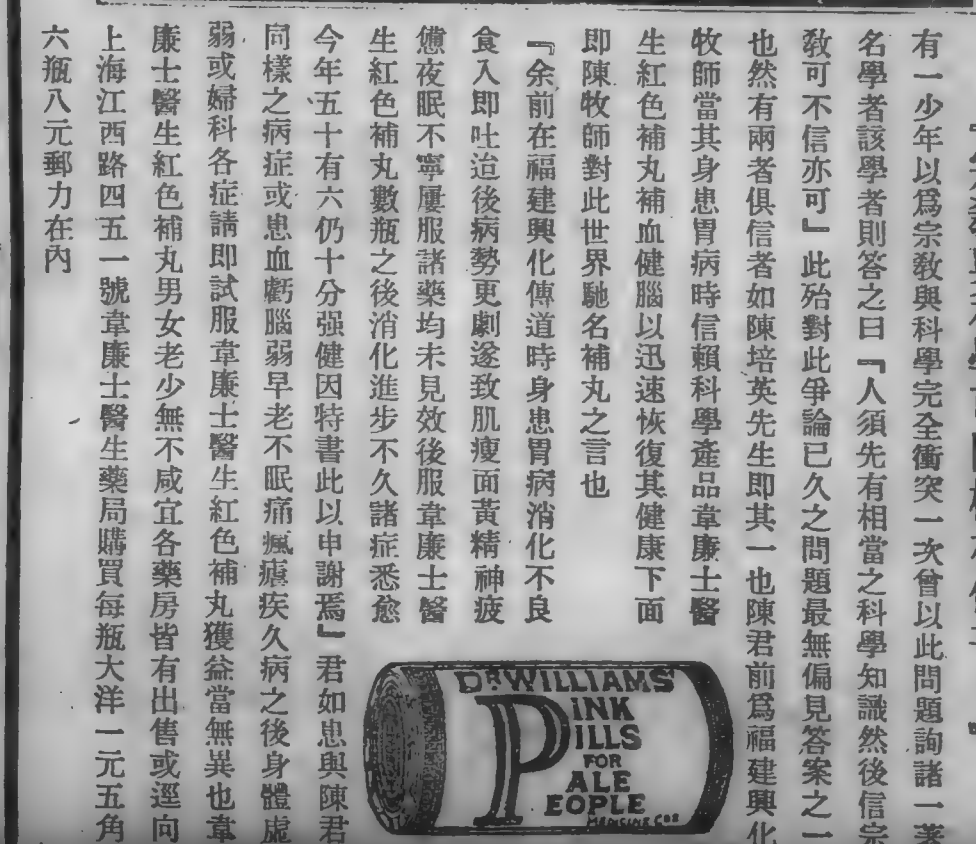 有一少年以爲宗教與科學完全衝突一次曾以此問題詢諸一著
名學者該學者則答之曰『人須先有相當之科學知識然後信宗
教可不信亦可』此殆對此爭論已久之問題最無偏見答案之一
也然有兩者俱信者如陳培英先生即其一也陳君前爲福建興化
牧師當其身患胃病時信賴科學產品韋廉士醫
生紅色補丸補血健腦以迅速恢復其健康下面
即陳牧師對此世界馳名補丸之言也
『余前在福建興化傳道時身患胃病消化不良
食入即吐迨後病勢更劇遂致肌瘦面黃精神疲
憊夜眠不寧屢服諸藥均未見效後服韋廉士醫
生紅色補丸數瓶之後消化進步不久諸症悉愈
今年五十有六仍十分强健因特書此以申謝焉』君如患與陳君
同樣之病症或患血虧腦弱早老不眠痛瘋瘧疾久病之後身體虛
弱或婦科各症請即試服韋廉士醫生紅色補丸獲益當無異也韋
廉士醫生紅色補丸男女老少無不咸宜各藥房皆有出售或逕向
上海江西路四五一號韋廉士醫生藥局購買每瓶大洋一元五角
六瓶八元郵力在內
DR WILLIAMS'
PINK
PILLS
FOR
PALE
PEOPLE
MEDICINE Co.